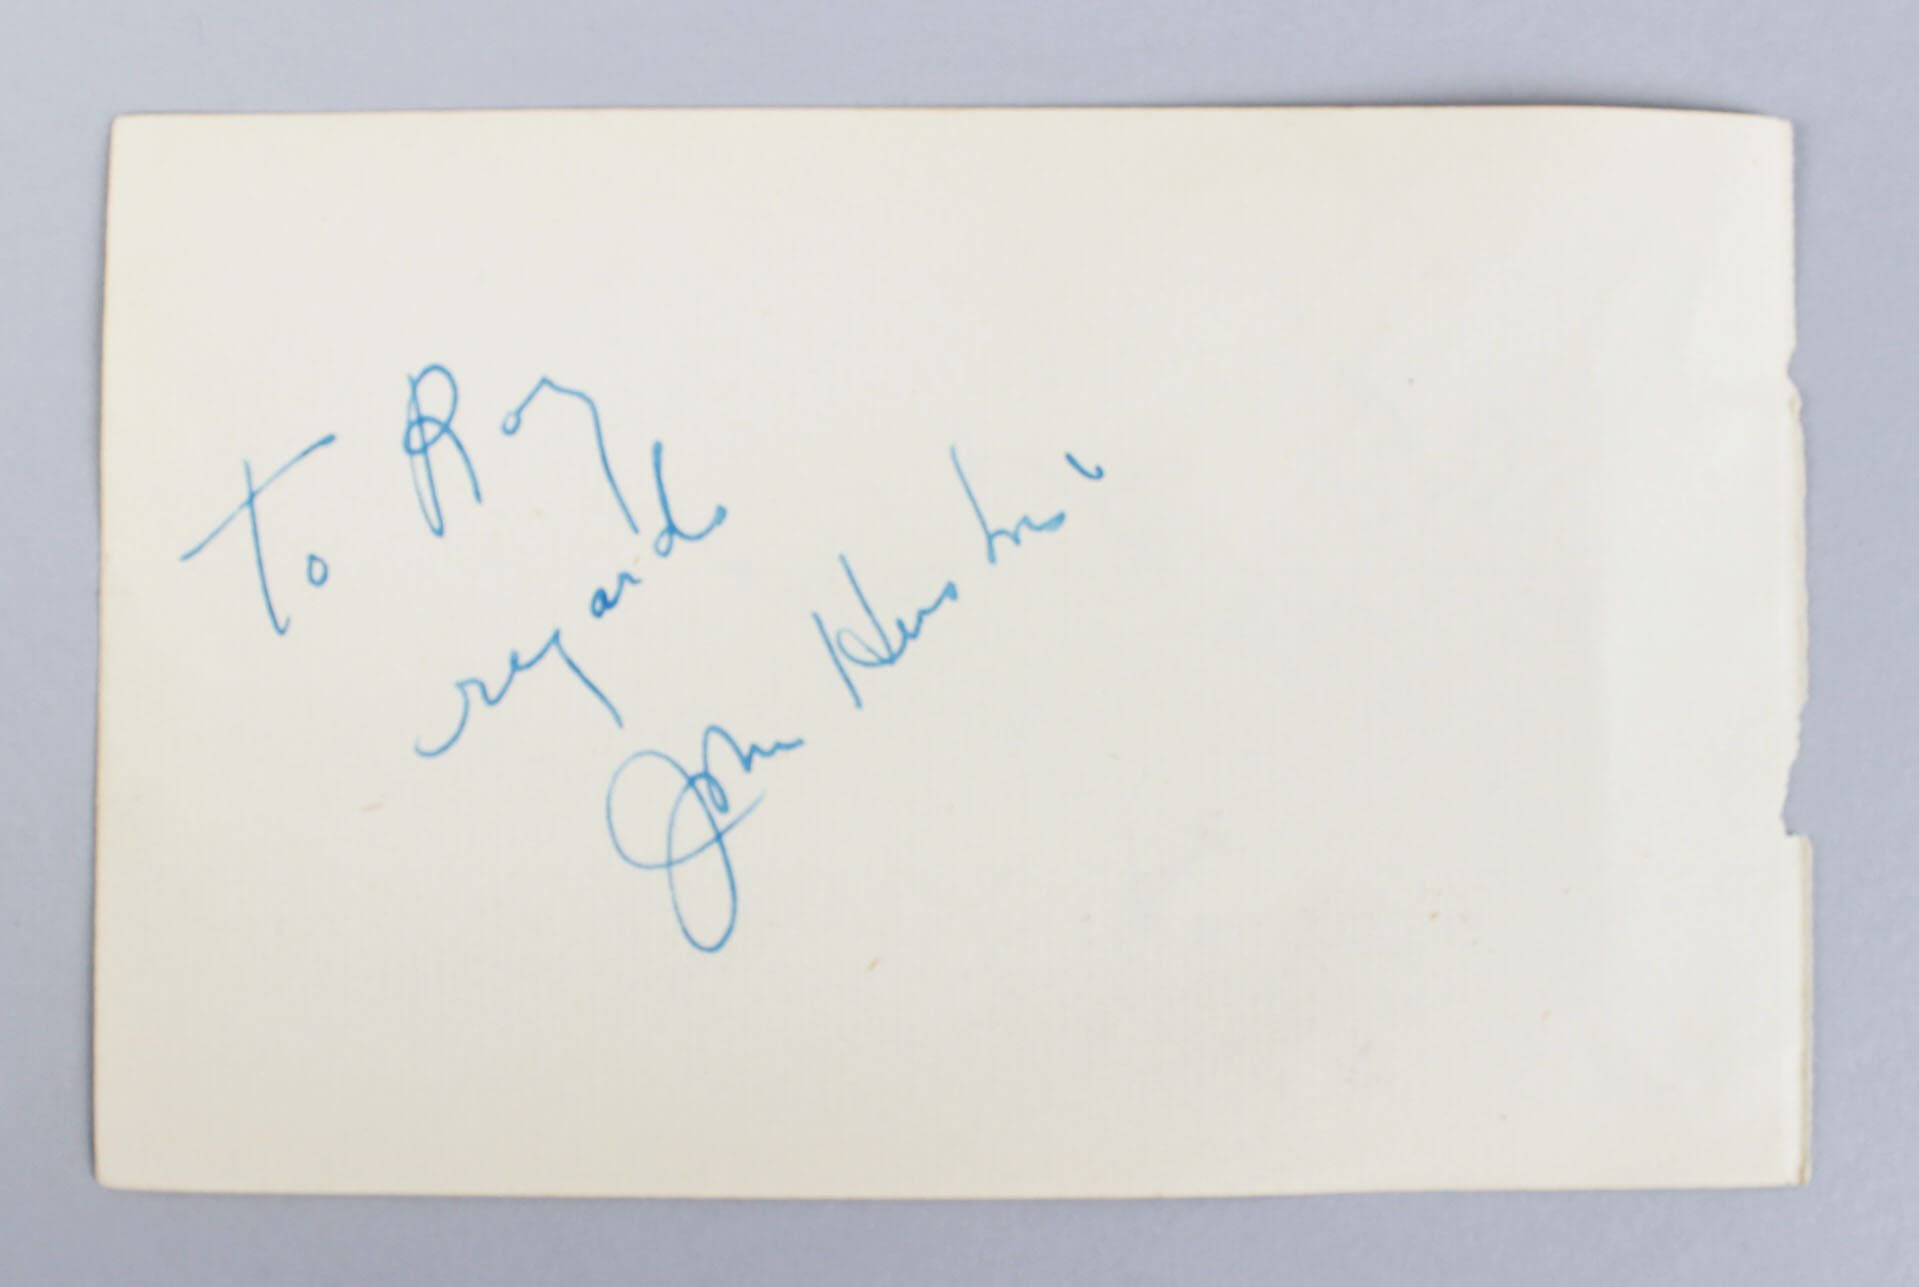 To Roy
regards
John Huston